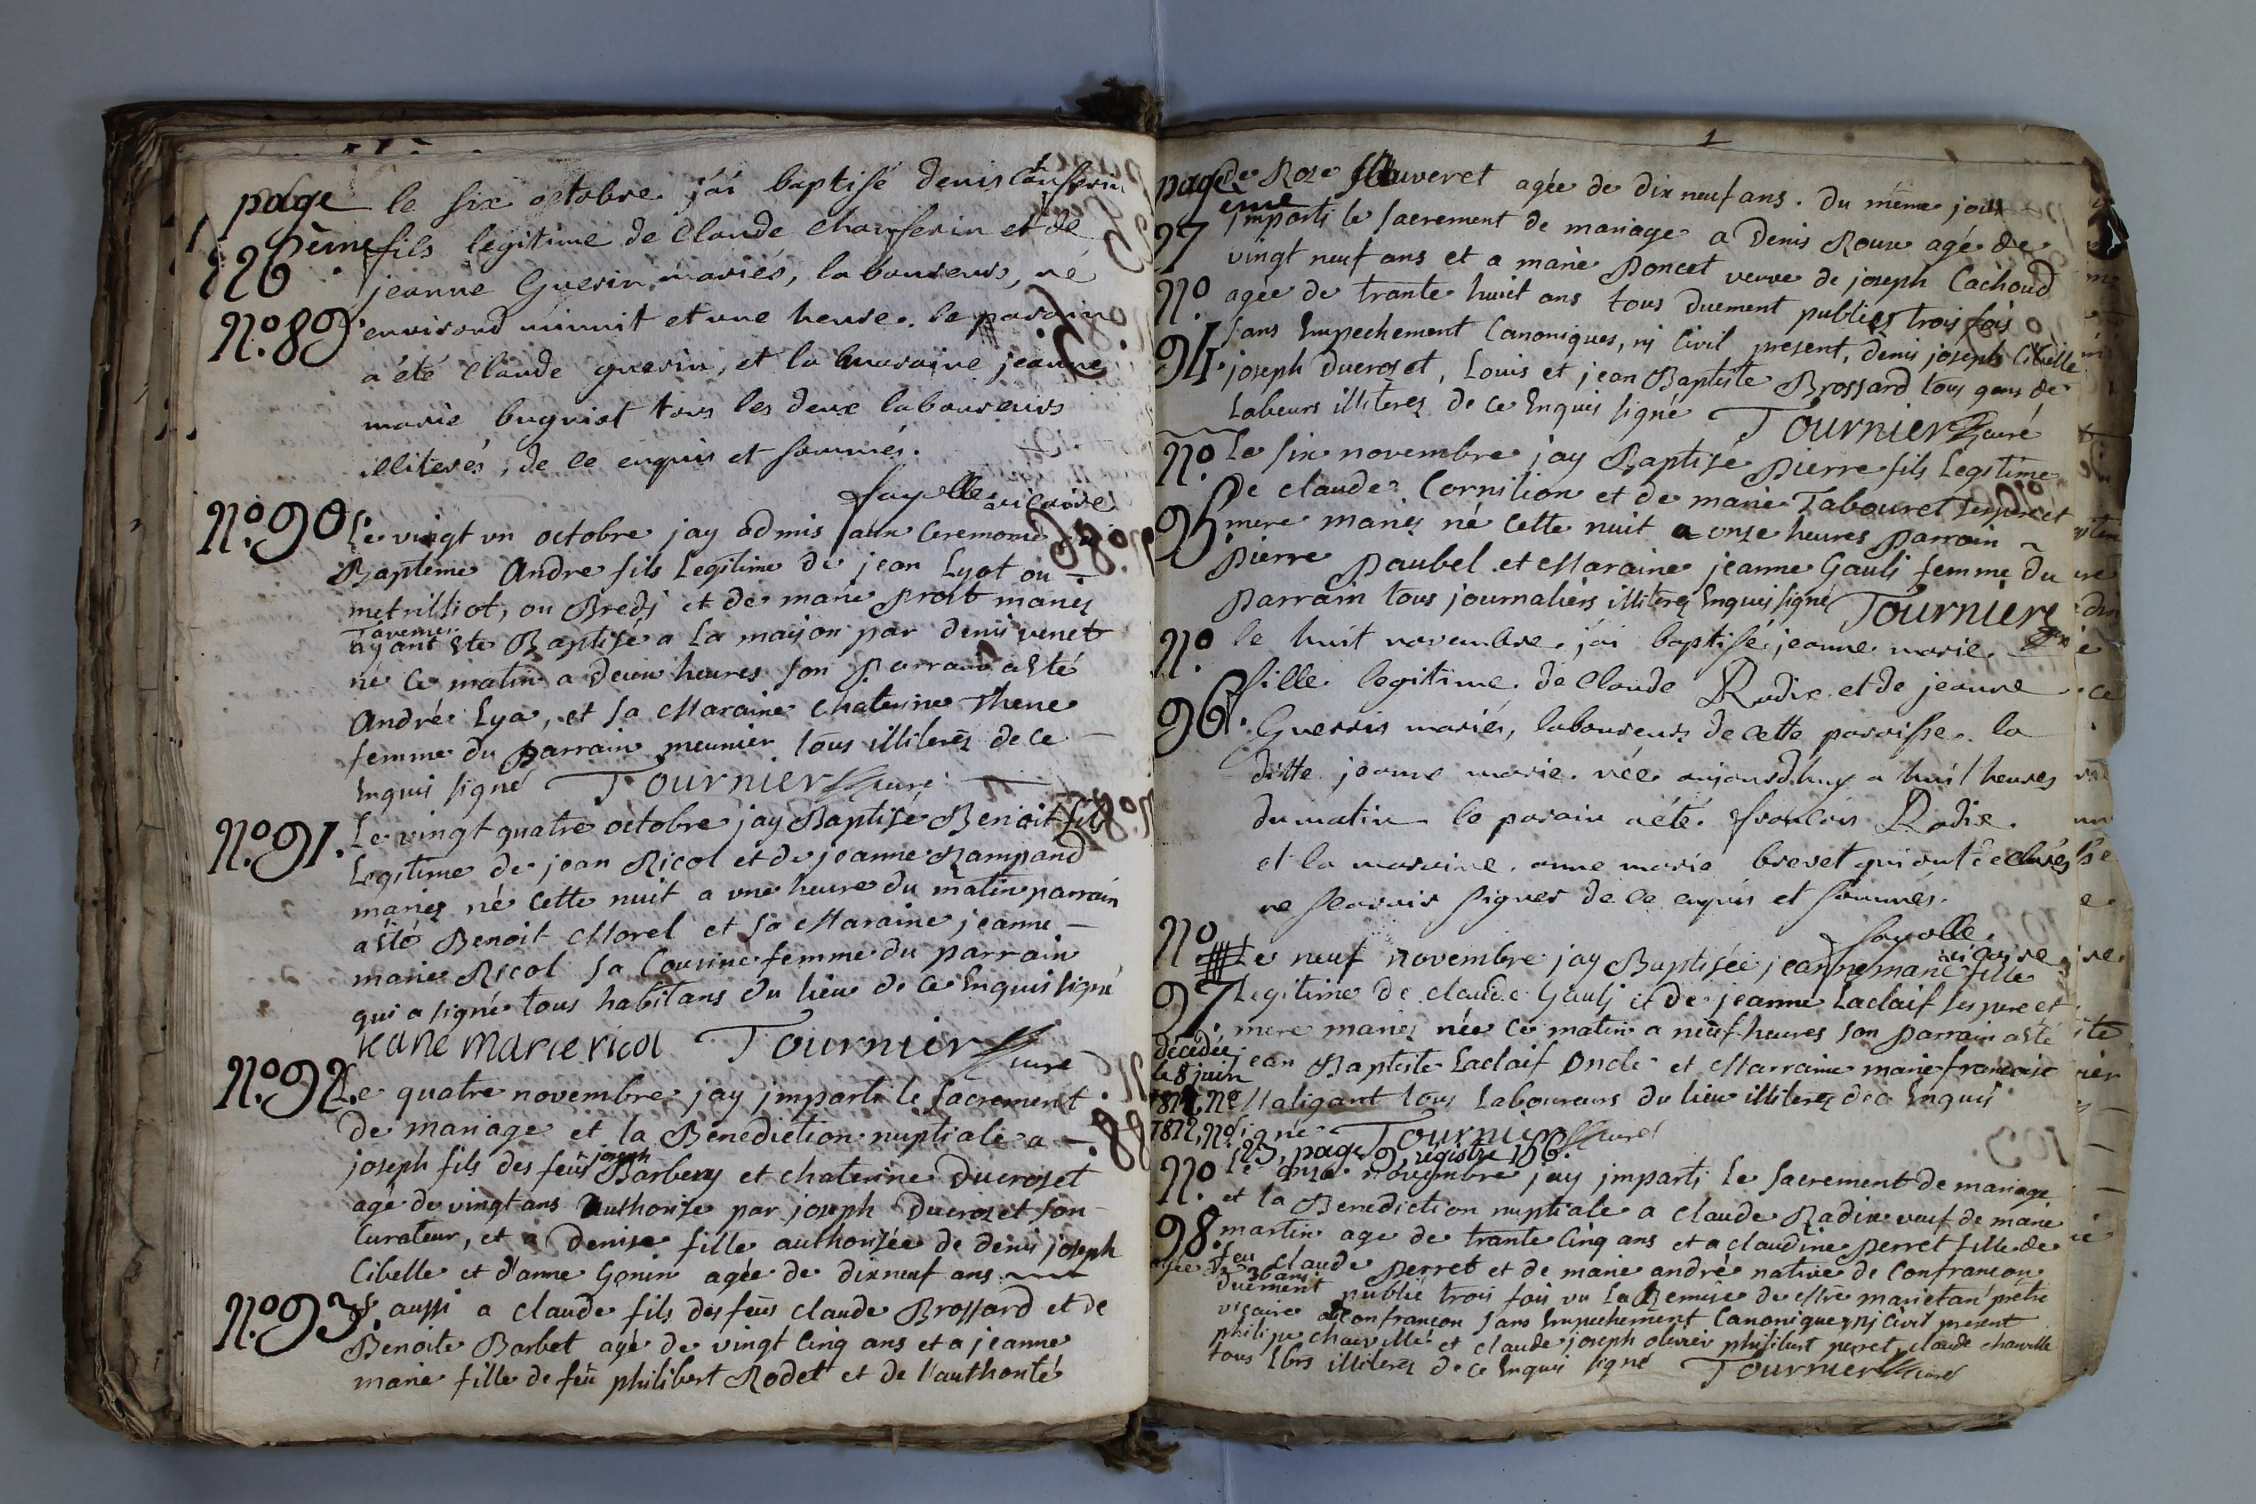 page le six octobre j'ai baptisé denis
ème fils legitime de Claude chanferin et de
26 jeanne Guerin mariés, laboureurs, né
N.o 89 environd minuit et une heure. le parain
a été Claude guerin, et la maraine jeanne
marie buguiot tous les deux laboureurs
illiterés, de ce enquis et sommés.
fayolle vicaire
N.o 90 Le vingt un octobre jay admis aux ceremonie
Bapteme Andre fils Legitime de jean Lyot ou
metrilliot, ou Bredy et de marie Prost mariez
Tavernier
ayant ete Baptisé a La maison par denis venet
né ce matin a deux heures son Parrain a Eté
André Lya, et sa Maraine Chaterine Thene
femme du Parrain meunier tous illiterez de ce
Enquis signé Tournier curé
N.o 91. Le vingt quatre octobre jay Baptisé Benoit fils
Legitime de jean Ricol et de jeanne Rampand
mariez né cette nuit a une heure du matin parrain
a Eté Benoit Morel et sa Maraine jeanne
marie Ricol sa Cousine femme du parrain
qui a signé tous habitans du lieu de ce Enquis signé
jeane marie ricol Tournier curé
N.o 92. Le quatre novembre jay imparti le sacrement
de mariage et la Benediction nuptiale a
joseph
joseph fils des feus Barbery et chaterine Ducroset
agé de vingt ans Authorize par joseph Ducrozet son
Curateur, et a Denise fille authorisée de denis joseph
Cibelle et d'anne Gonin agée de dix neuf ans
N.o 93. aussi a claude fils des feus claude Brossard et de
Benoite Barbet agé de vingt Cinq ans et a jeanne
marie fille de feu philibert Rodet et de l'authorité
1
page de Roze Sauveret agée de dix neuf ans. Du même jour
eme imparti le sacrement de mariage a Denis Roux agé de
27 vingt neuf ans et a marie Poncet veuve de joseph Cachoud
N.o agée de trante huit ans tous duement publiez trois fois
94. sans Empechement Canoniques, ni Civil present, denis joseph Cibelle
joseph ducroset, Louis et jean Baptiste Brossard tous gens de
Labeurs illiterez de ce Enquis signé Tournier curé
N.o Le six novembre jay Baptisé Pierre fils Legitime
De claude Cornilion et de marie Tabouret ses pere et
95 mere mariez né cette nuit a onze heures Parrain
Pierre Paubel et Maraine jeanne Gauli femme du
Parrain tous journaliers illiterez Enquis signé Tournier
N.o le huit novembre j'ai baptisé jeanne marie
fille legitime de Claude Radix et de jeanne
96. Guerris mariés, laboureurs de cette paroisse. la
ditte jeanne marie née aujourd'huy a huit heures
du matin le parain a été francois Radix
et la maraine anne marie brevet qui ont declarés
ne scavoir signer de ce enquis et sommés.
fayolle
vicaire
N.o Le neuf novembre jay Baptisée jeanne marie fille
97. Legitime de claude Gauli et de jeanne Laclaif ses pere et
mere mariez née ce matin a neuf heures son Parrain a Eté
décédée jean Baptiste Laclaif Oncle et Marraine marie francoise
le 8 juin Maligant tous Laboureurs du lieu illiterez de ce Enquis
signé Tournier curé
23, page 9, registre 156.
N.o Le onze novembre jay imparti Le sacrement de mariage
et la Benediction nuptiale a claude Radix veuf de marie
98. martin age de trante Cinq ans et a claudine Perret fille de
feu claude Perret et de marie andré native de Confrancon
agée de 30 ans
Duement publié trois fois vu La Remise de Mre marietan pretre
vicaire a Confrancon sans Empechement Canonique, ni Civil present
philipe chauville et claude joseph olivier philibert perret, claude chauville
tous Lbrs illiterez de ce Enquis signé Tournier curé